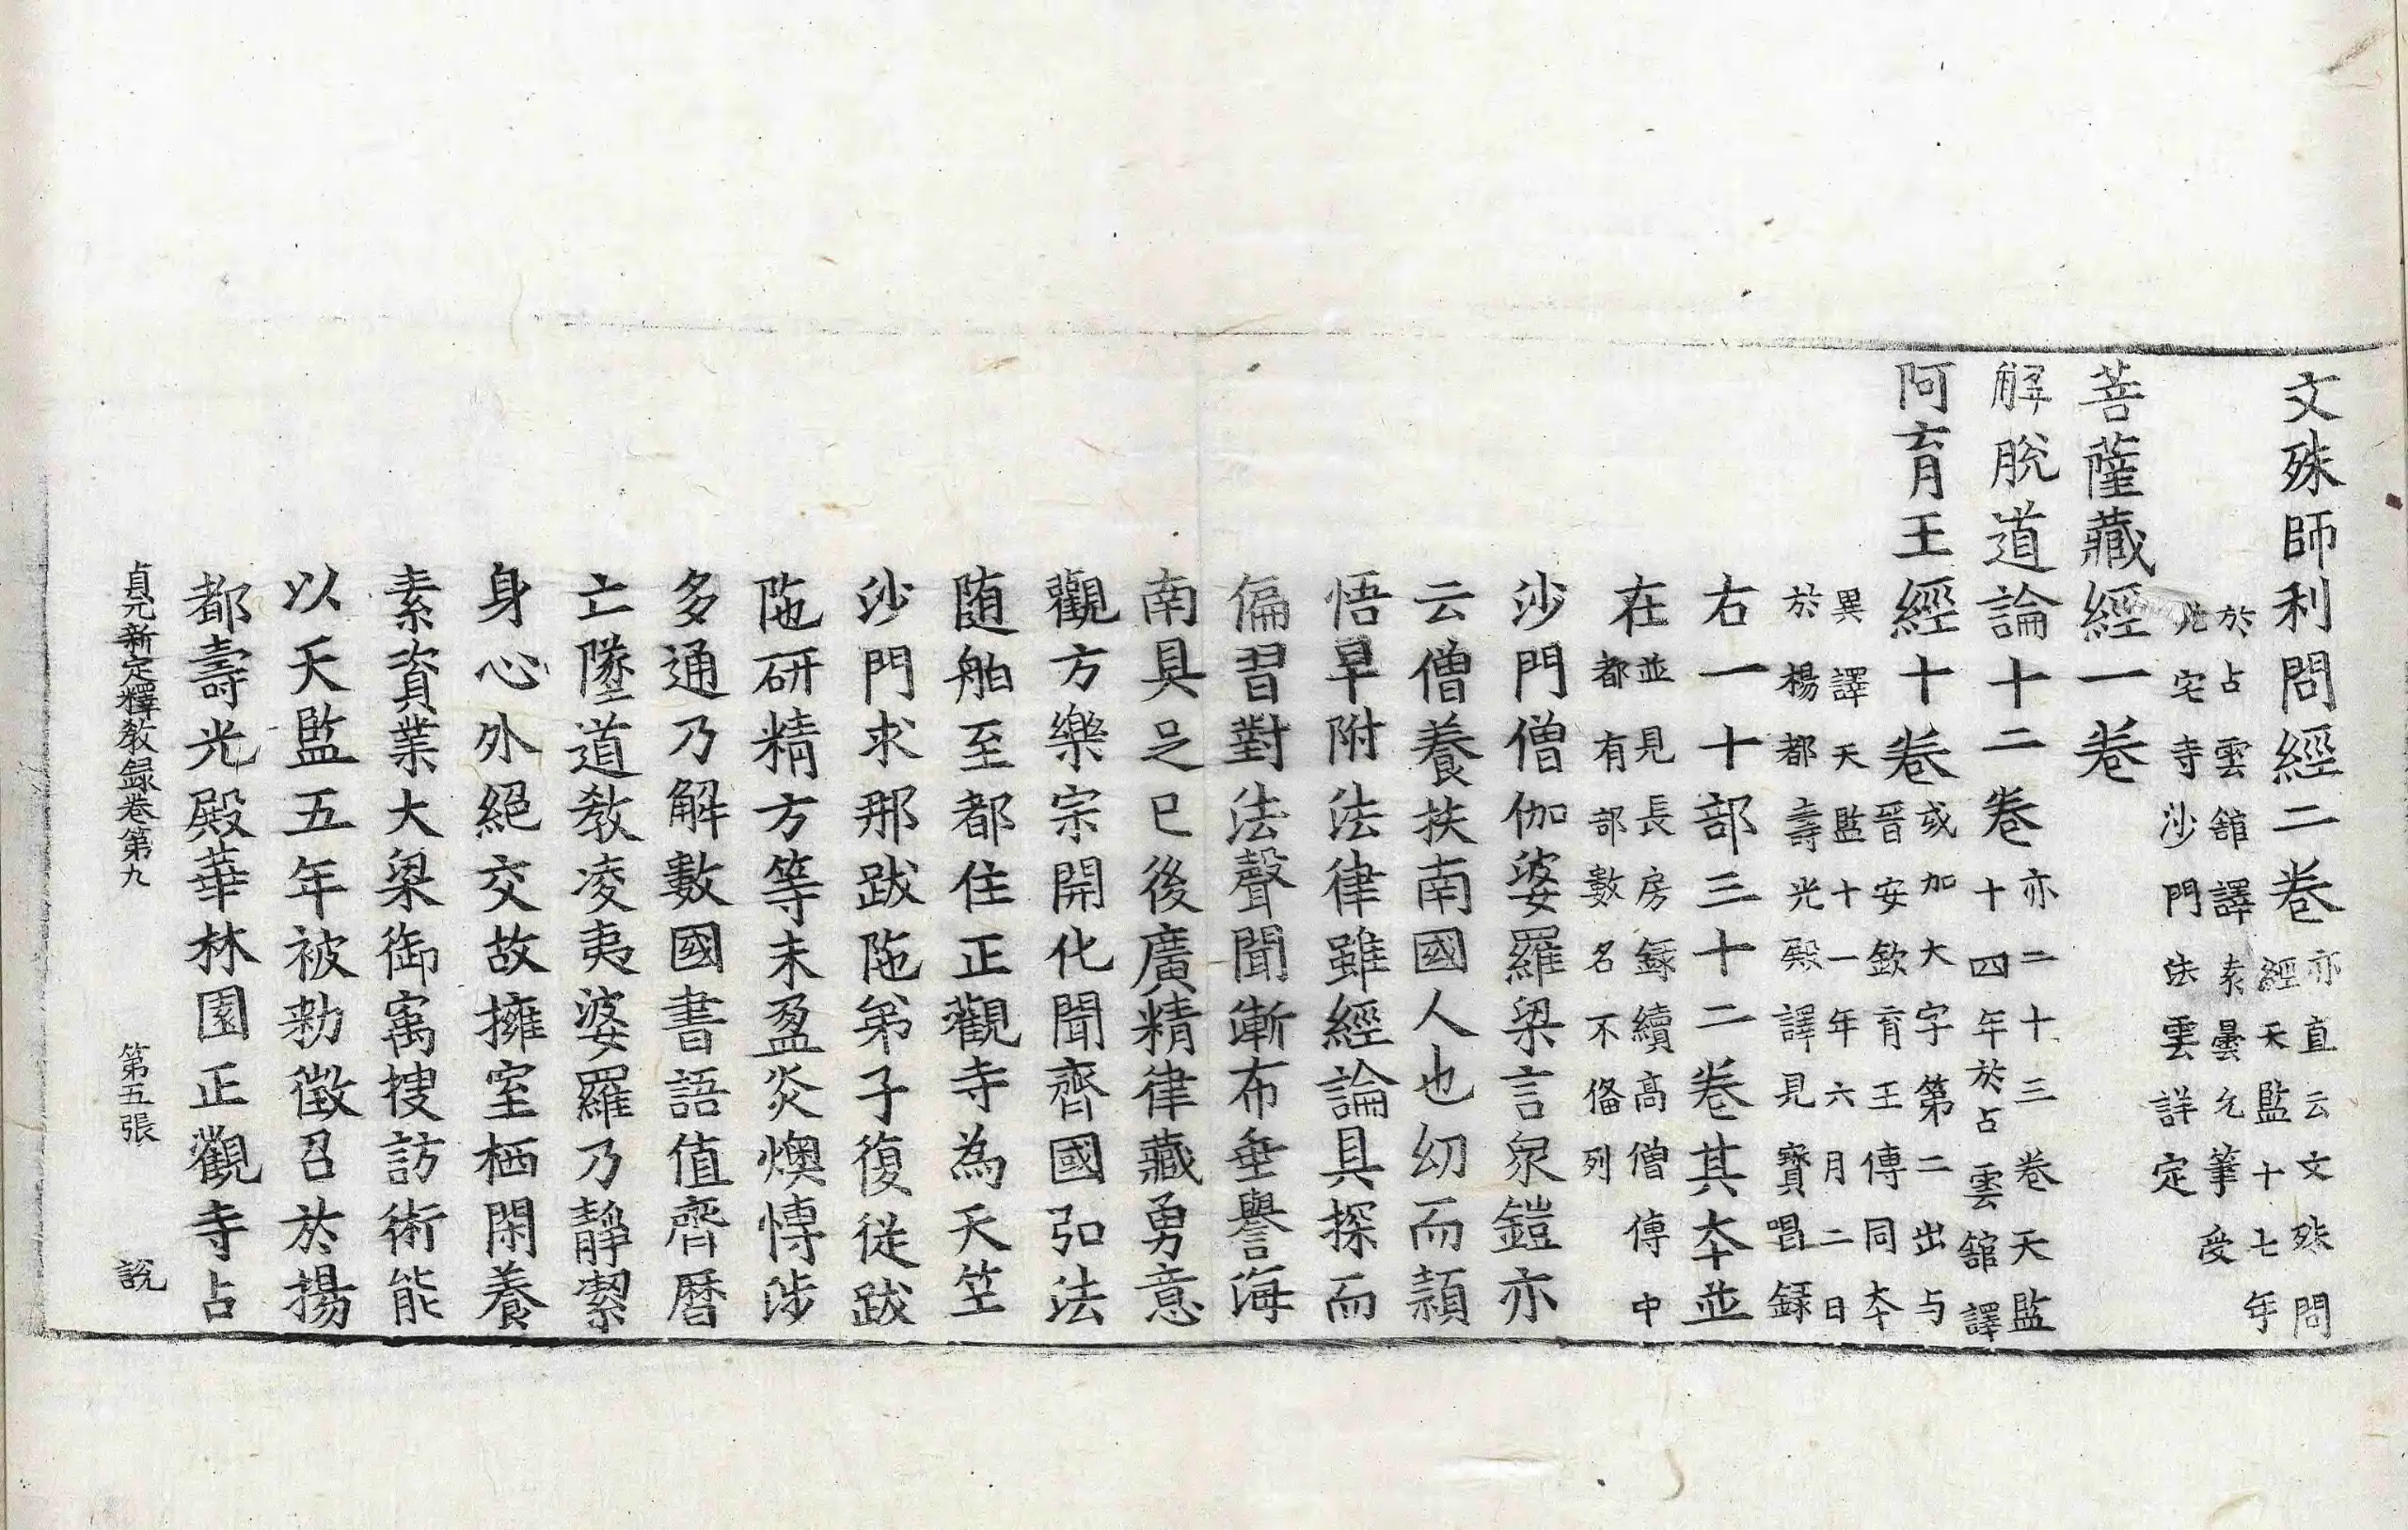 文殊師利問經二卷亦直云文殊問經天監十七年
於占雲館譯袁曇允筆受光宅寺沙門法雲詳定
菩薩藏經一卷
解脫道論十二卷亦二十三卷天監十四年於占雲館譯
阿育王經十卷或加大字第二出与晉安欽育王傳同夲
異譯天監十一年六月二日於楊都壽光殿譯見寶唱録
右一十部三十二卷其夲並
在並見長房録續高僧傳中都有部數名不俻列
沙門僧伽婆羅梁言衆鎧亦
云僧養扶南國人也幼而頴
悟早附法律雖經論具探而
偏習對法聲聞漸布垂譽海
南具足已後廣精律藏勇意
觀方樂宗開化聞齊國弘法
随舶至都住正觀寺為天竺
沙門求那跋陁弟子復從跋
陁研精方等未盈炎燠愽涉
多通乃解數國書語值齊曆
亡墜道教凌夷婆羅乃靜潔
身心外絕交故擁室栖閑養
素資業大梁御寓搜訪術能
以天監五年被勑徵召於揚
都壽光殿華林園正觀寺占
貞元新定釋教録卷第九 第五張 說